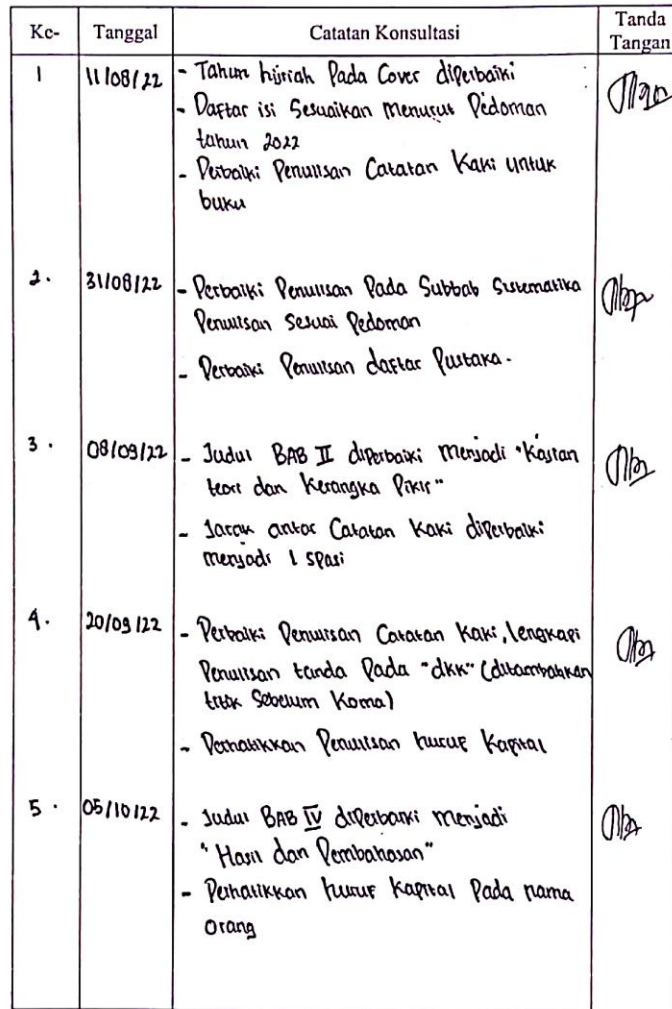 Ke-
Tanggal
Catatan Konsultasi
Tanda
Tangan
1
11/08/22
- Tahun hijriah Pada Cover diperbaiki
- Daftar isi Sesuaikan Menurut Pedoman
tahun 2022
- Perbaiki Penulisan Catatan Kaki untuk
buku
2.
31/08/22
- Perbaiki Penulisan Pada Subbab Sistematika
Penulisan Sesuai Pedoman
- Perbaiki Penulisan daftar Pustaka.
3.
08/09/22
- Judul BAB II diperbaiki Menjadi "Kajian
teori dan Kerangka Pikir"
- Jarak antar Catatan Kaki diperbaiki
menjadi 1 spasi
4.
20/09/22
- Perbaiki Penulisan Catatan Kaki, lengkapi
Penulisan tanda Pada "dkk" (ditambahkan
titik Sebelum Koma)
- Perhatikkan Penulisan huruf Kapital
5.
05/10/22
- Judul BAB IV diperbaiki menjadi
"Hasil dan Pembahasan"
- Perhatikkan huruf Kapital Pada nama
orang